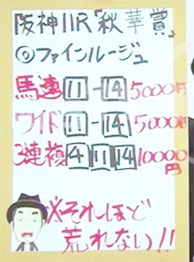 阪神11R『秋華賞』
◎ファインルージュ
馬連 11-14 5000円
ワイド 11-14 5000円
3連複 4 11 14 10000円
※それほど
荒れない!!